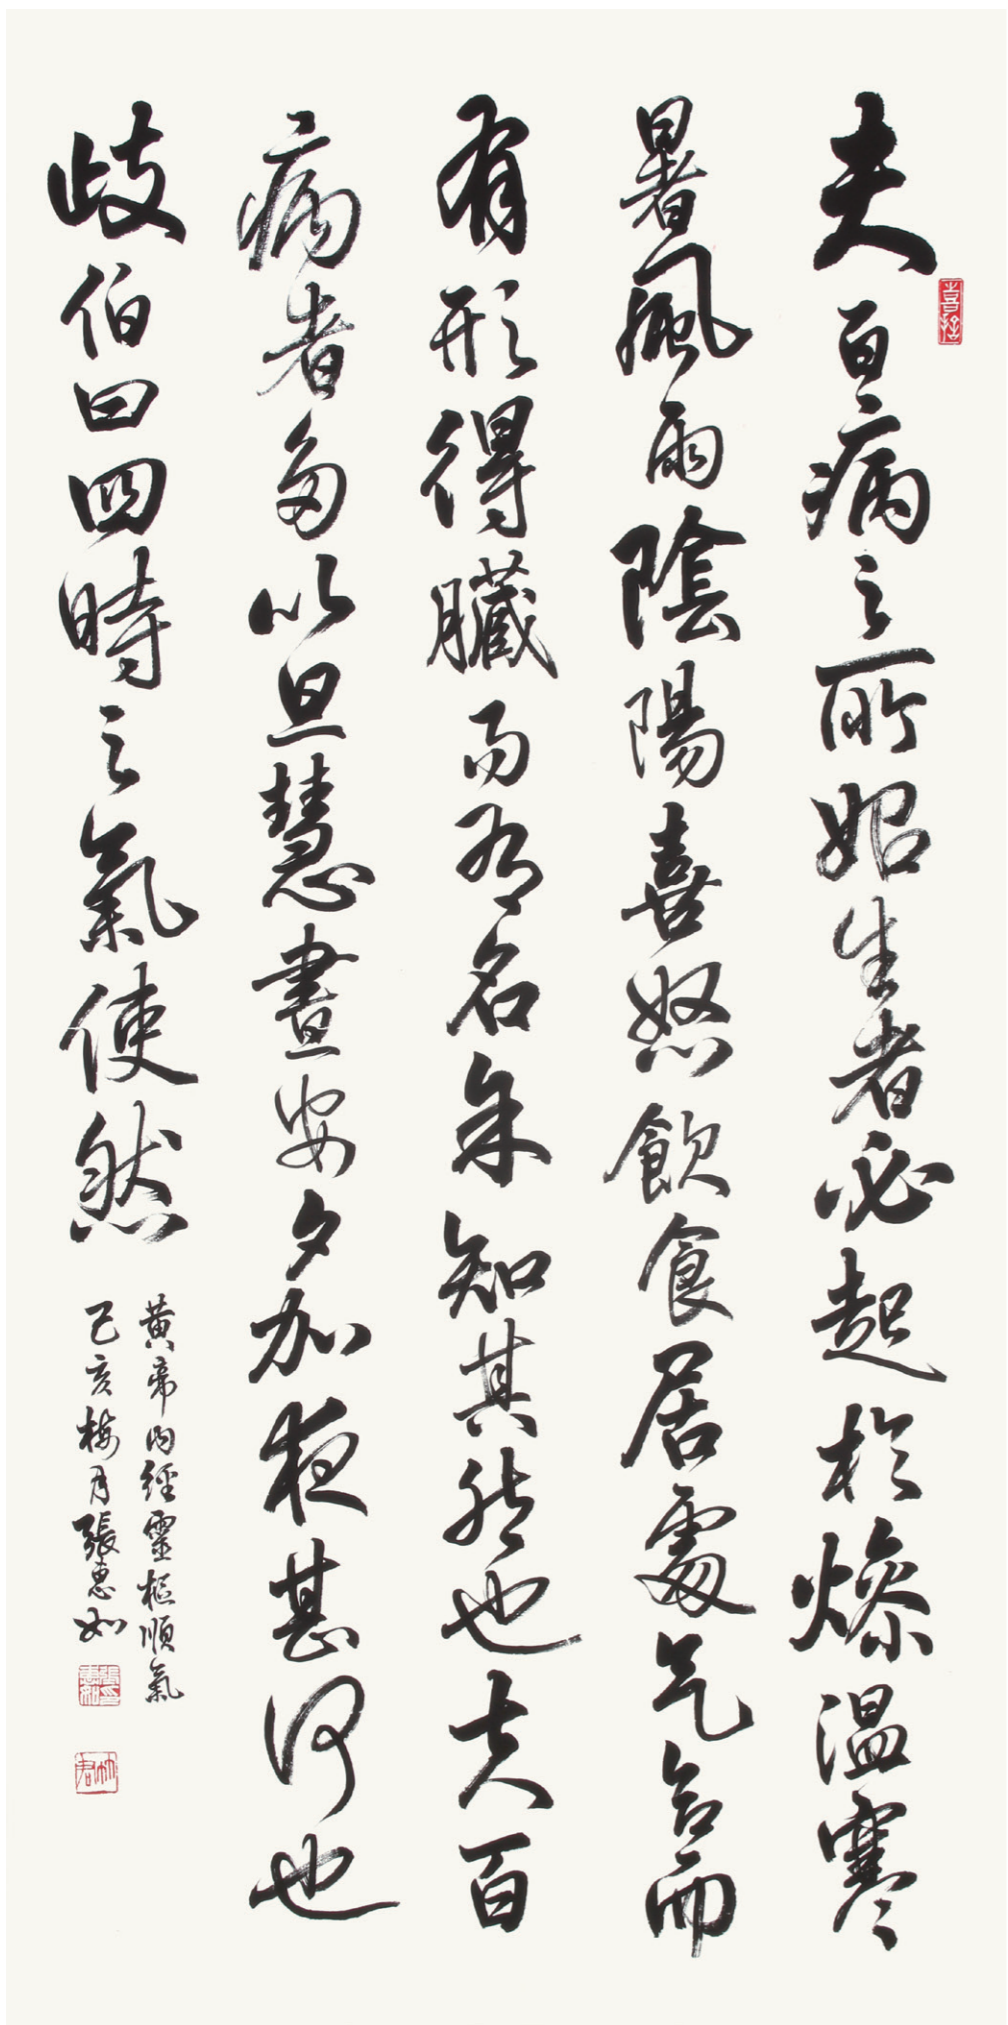 夫百病之所始生者必起於燥温寒
暑風雨陰陽喜怒飲食居處气合而
有形得臟而有名余知其然也夫百
病者多以旦慧晝安夕加夜甚何也
歧伯曰四時之氣使然
黄帝内經靈樞順氣
己亥梅月張惠如